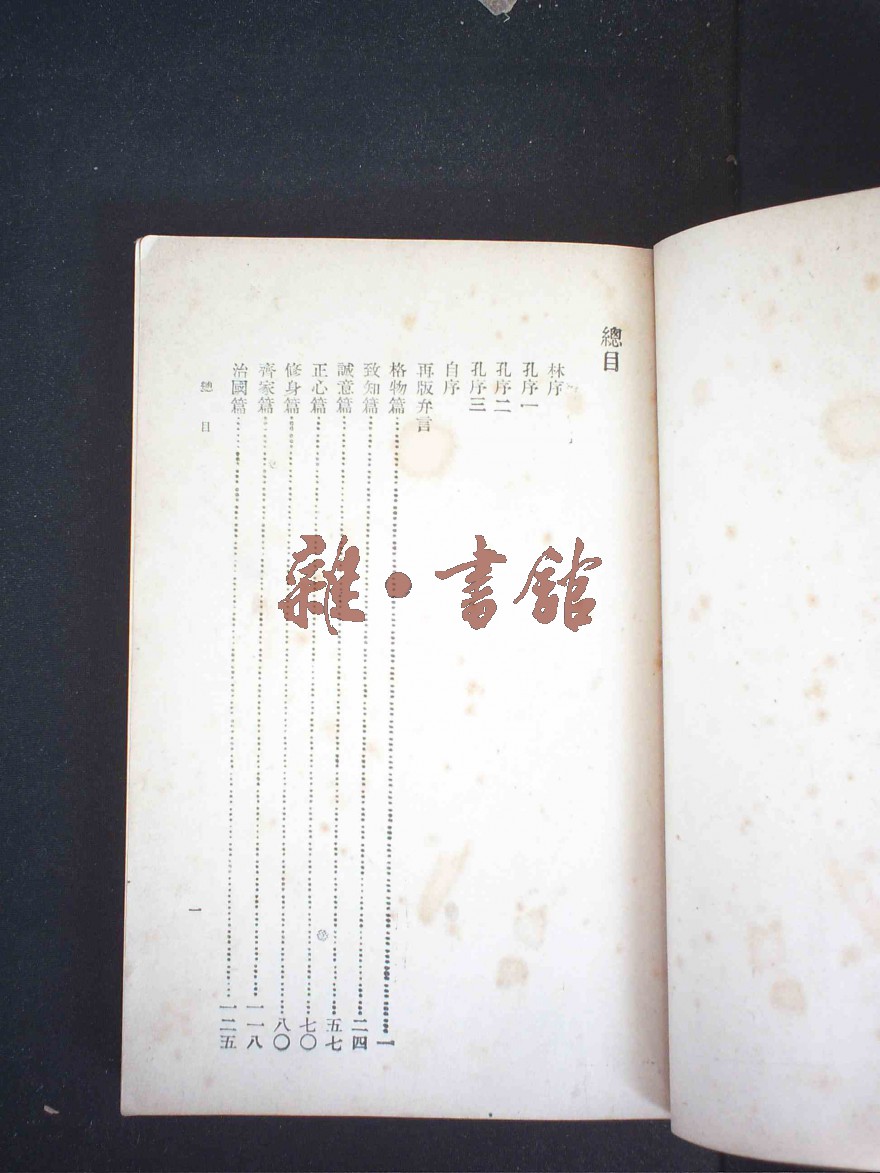 總目
林序
孔序一
孔序二
孔序三
自序
再版弁言
格物篇⋯⋯一
致知篇⋯⋯二四
誠意篇⋯⋯五七
正心篇⋯⋯七〇
修身篇⋯⋯八〇
齊家篇⋯⋯一一八
治國篇⋯⋯一二五
總目
一
雜·書館